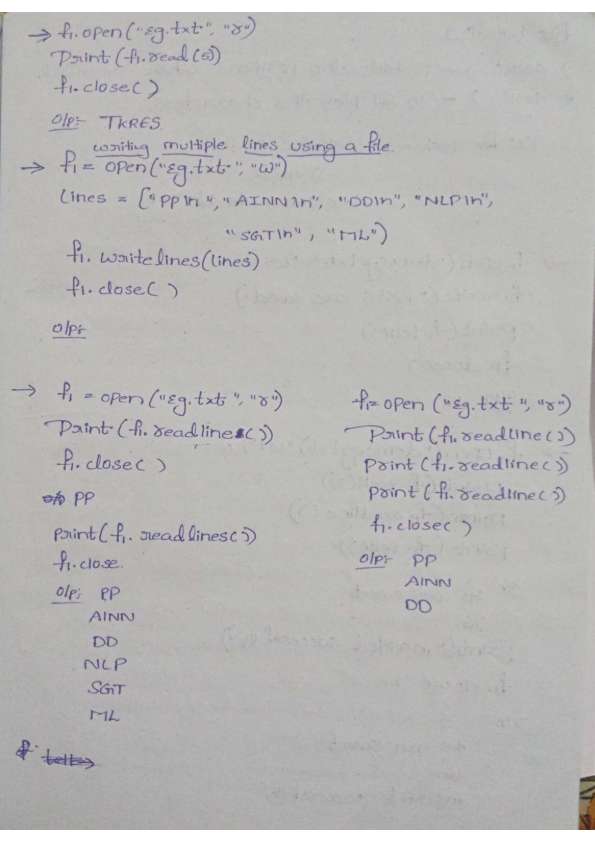 → f1.open("Eg.txt", "r")
Print (f1.read(5))
f1.close( )
o/p:- TKRES
writing multiple lines using a file
→ f1 = open("Eg.txt", "w")
lines = ["PP\n", "AINN\n", "DD\n", "NLP\n",
"SGT\n", "ML")
f1.writelines(lines)
f1.close( )
o/p:-
→ f1 = open("Eg.txt", "r")
Print (f1.readline())
f1.close( )
o/p PP
print(f1.readlines())
f1.close.
o/p:- PP
AINN
DD
NLP
SGT
ML
f1= open ("Eg.txt", "r")
Print (f1.readline())
print (f1.readline())
print (f1.readline())
f1.close( )
o/p:- PP
AINN
DD